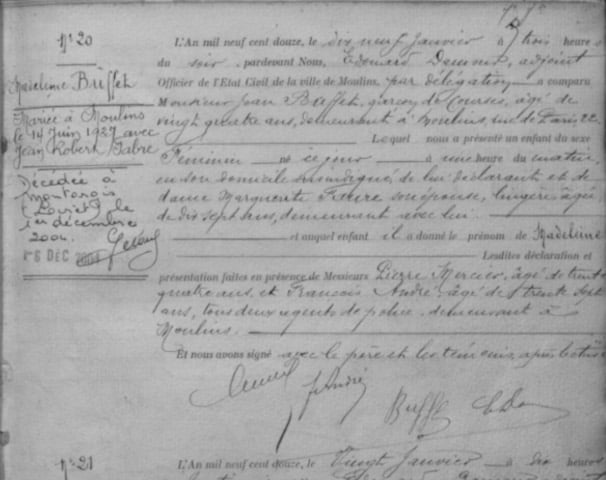 N° 20
Madeleine Buffet
Mariée à Moulins
le 14 Juin 1927 avec
Jean Robert Fabre
Décédée à
Montargis
(Loiret) le
1er décembre
2004.
6 DEC 2004
L'An mil neuf cent douze, le dix neuf Janvier à trois heures
du soir, pardevant Nous, Edouard adjoint
Officier de l'Etat Civil de la ville de Moulins, par délégation a comparu
Monsieur Jean Buffet, garçon de courses, âgé de
vingt quatre ans, demeurant à Moulins, rue de Paris 22
Lequel nous a présenté un enfant du sexe
Féminin né ce jour à une heure du matin,
en son domicile susindiqué, de lui déclarant et de
dame Marguerite son épouse, lingère âgée
de dix sept ans, demeurant avec lui.
et auquel enfant il a donné le prénom de Madeleine
Lesdites déclaration et
présentation faites en présence de Messieurs Pierre Mercier, âgé de trente
quatre ans, et François André, âgé de trente sept
ans, tous deux agents de police, demeurant à
Moulins.
Et nous avons signé avec le père et les témoins, après lecture
André
Buffet
N° 21
L'An mil neuf cent douze, le Vingt Janvier à dix heures